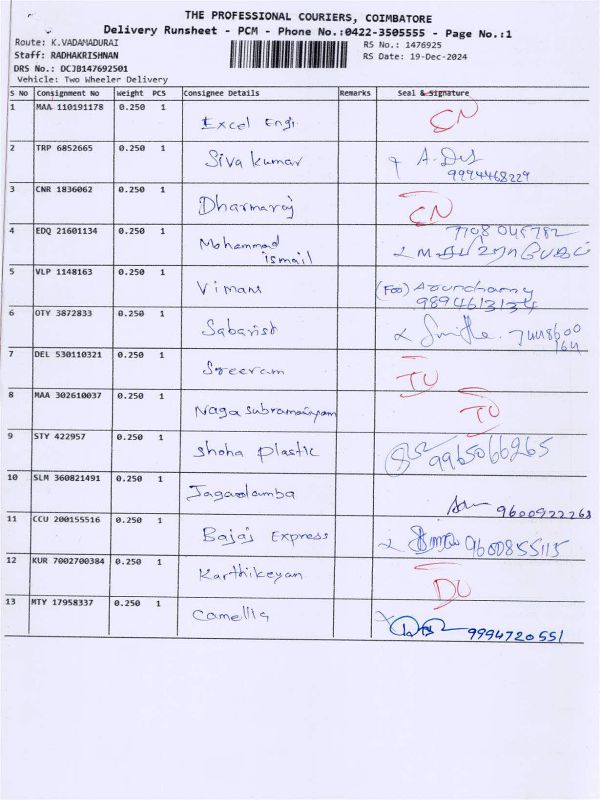 THE PROFESSIONAL COURIERS, COIMBATORE
Delivery Runsheet - PCM - Phone No.:0422-3505555 - Page No.:1
Route: K.VADAMADURAI RS No.: 1476925
Staff: RADHAKRISHNAN RS Date: 19-Dec-2024
DRS No.: DCJB147692501
Vehicle: Two Wheeler Delivery
S No Consignment No Weight PCS Consignee Details Remarks Seal & Signature
1 MAA 110191178 0.250 1 Excel Engi. CN
2 TRP 6852665 0.250 1 Siva kumar 9994468229
3 CNR 1836062 0.250 1 Dharmaraj CN
4 EDQ 21601134 0.250 1 Mohammad
ismail
5 VLP 1148163 0.250 1 Vimans
9894613134
6 OTY 3872833 0.250 1 Sabarish
7 DEL 530110321 0.250 1 Sreeram TU
8 MAA 302610037 0.250 1 Naga subramaniyam TU
9 STY 422957 0.250 1 Shoha plastic 9965066265
10 SLM 360821491 0.250 1 Jagadamba 9600922268
11 CCU 200155516 0.250 1 Bajaj Express 9600855115
12 KUR 7002700384 0.250 1 Karthikeyan DU
13 MTY 17958337 0.250 1 Camellia 9994720551